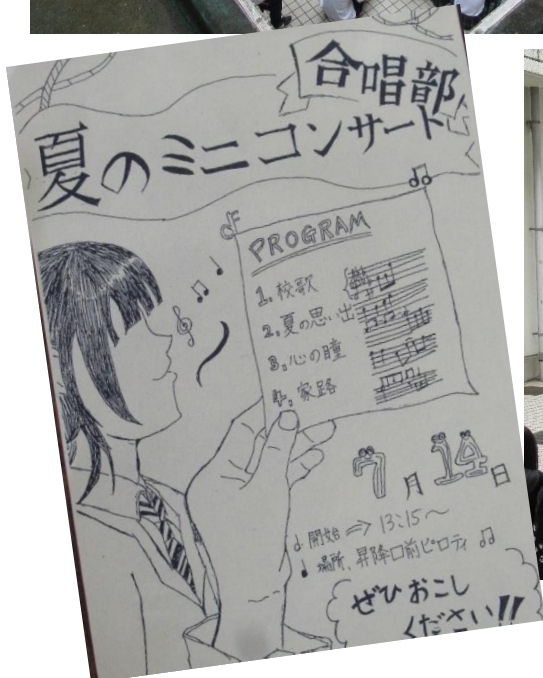 合唱部
夏のミニコンサート
PROGRAM
1. 校歌
2. 夏の思い出
3. 心の瞳
4. 家路
7月14日
開始 ⇒ 13:15〜
場所、昇降口前ピロティ
ぜひおこし
ください!!